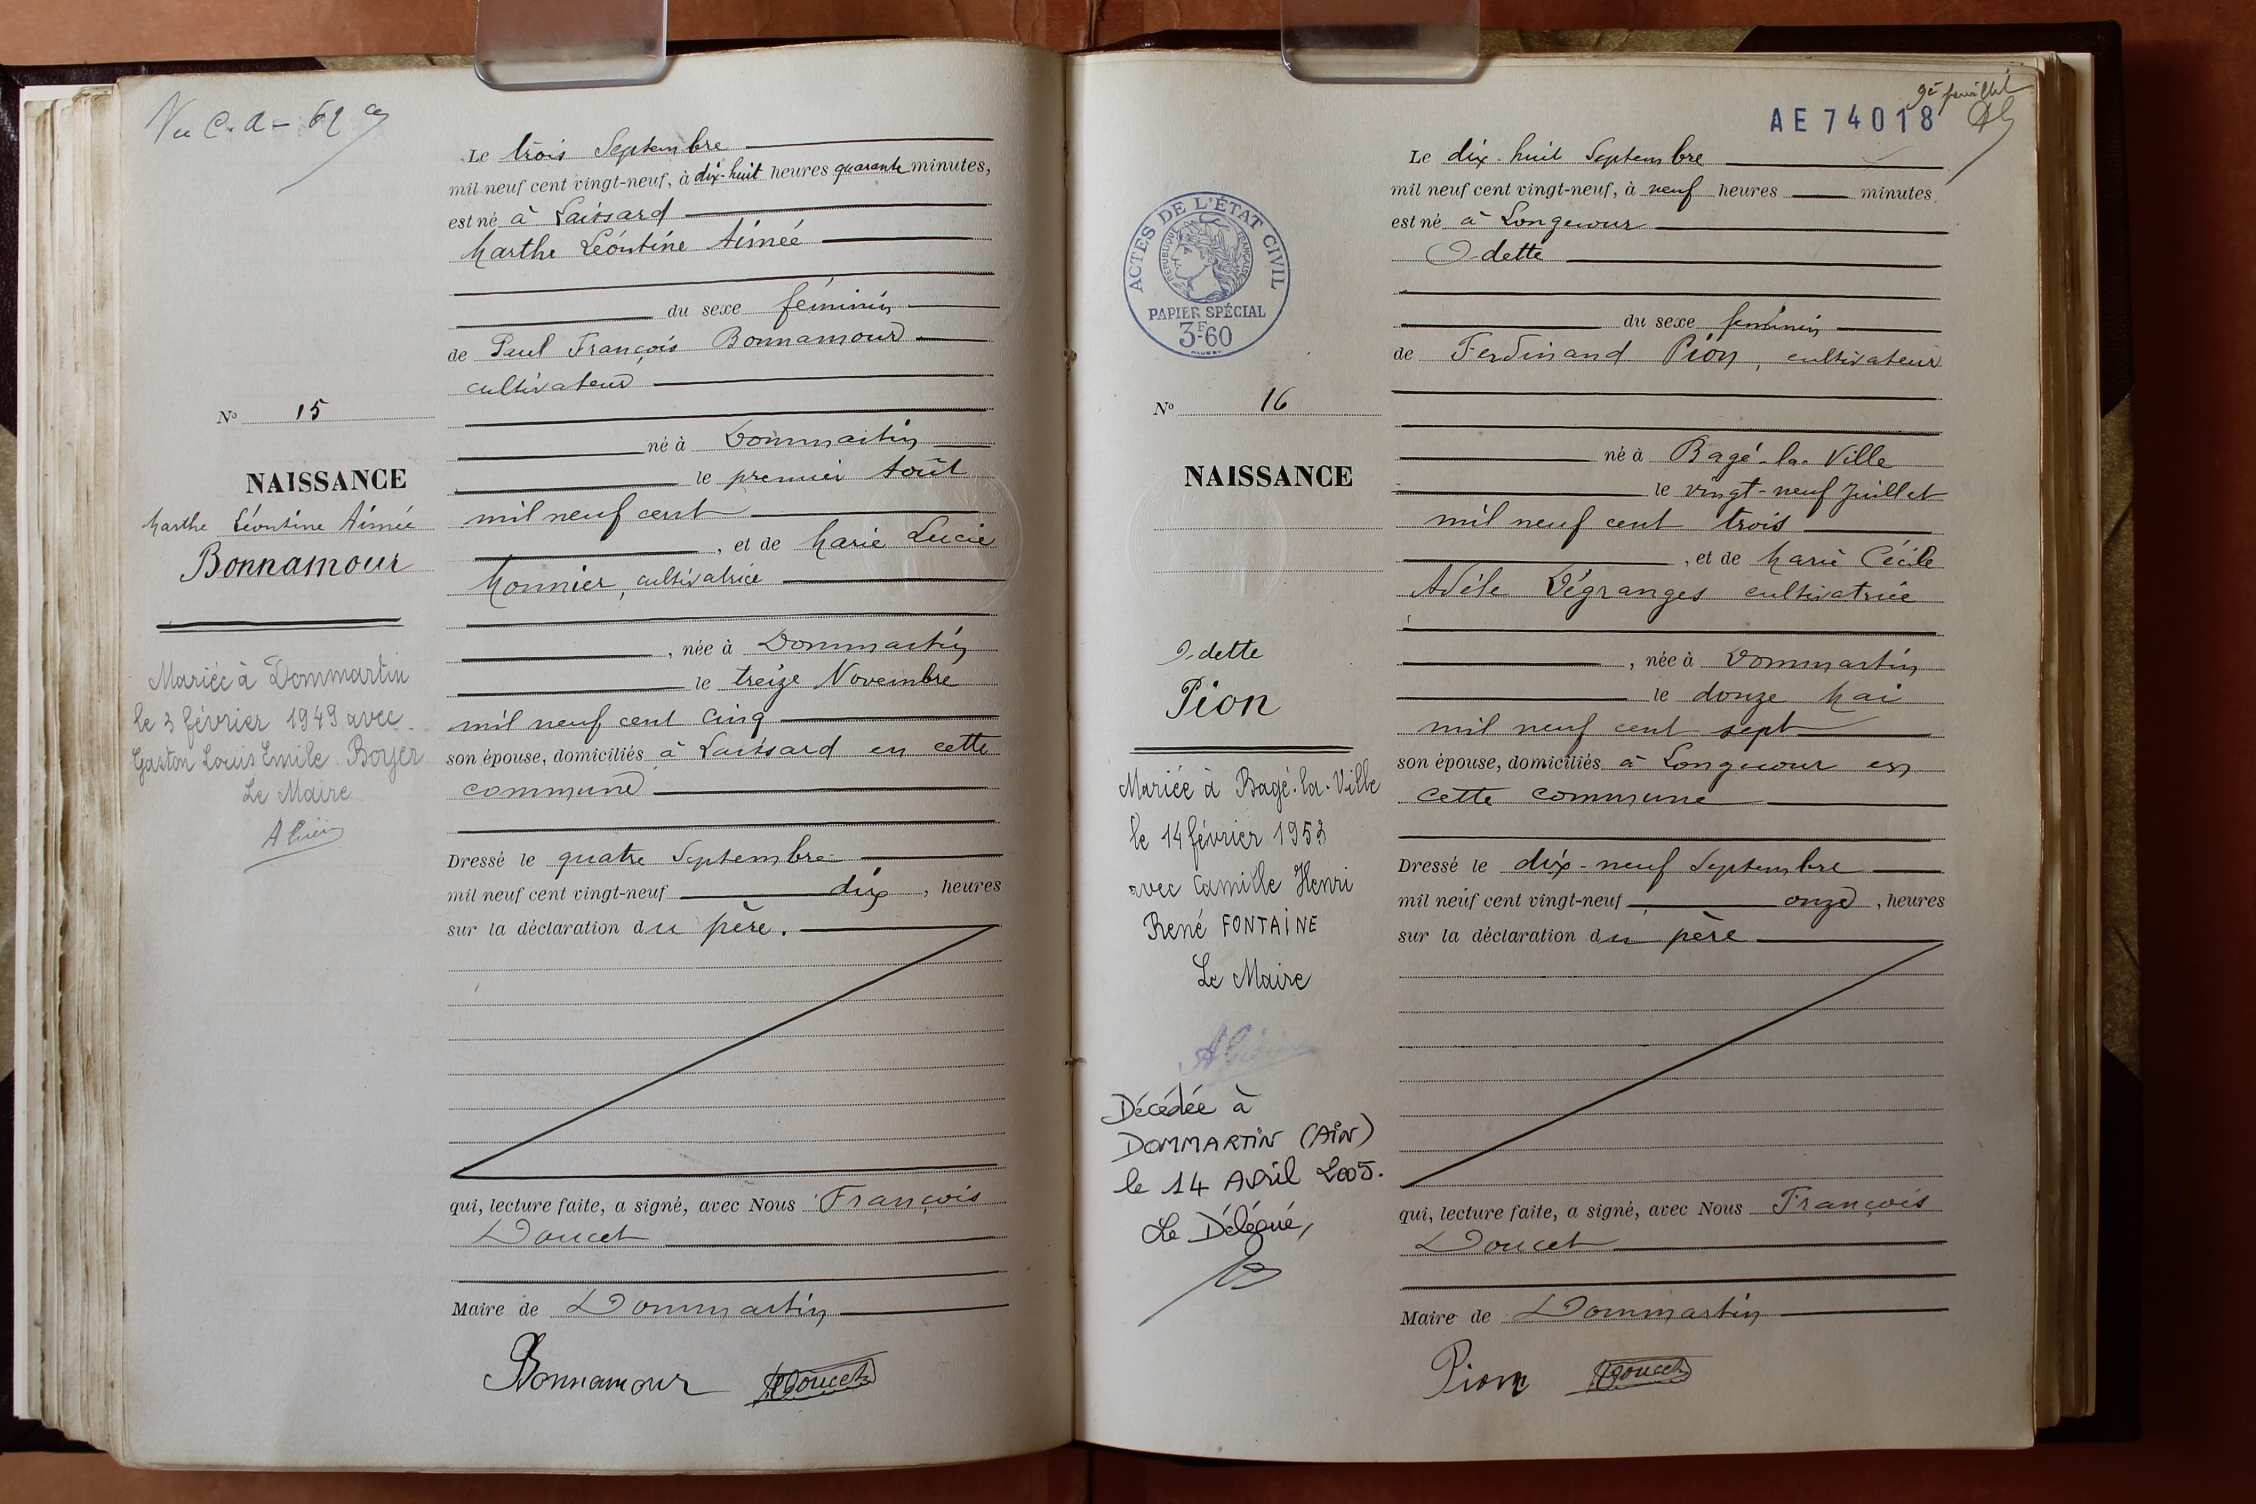 Vu C.A-
Le trois Septembre
mil neuf cent vingt-neuf, à dix-huit heures quarante minutes,
est né à Laissard
Marthe Léontine Aimée
du sexe féminin
de Paul François Bonnamour
cultivateur
né à Dommartin
le premier Août
mil neuf cent
, et de Marie Lucie
Monnier, cultivatrice
, née à Dommartin
le treize Novembre
mil neuf cent cinq
son épouse, domiciliés à Laissard en cette
commune
Dressé le quatre Septembre
mil neuf cent vingt-neuf dix, heures
sur la déclaration du père.
qui, lecture faite, a signé, avec Nous François
Doucet
Maire de Dommartin
Bonnamour Doucet
No 15
NAISSANCE
Marthe Léontine Aimée
Bonnamour
Mariée à Dommartin
le 3 février 1949 avec
Gaston Louis Emile Boyer
Le Maire
9e feuillet
AE74018
Le dix-huit Septembre
mil neuf cent vingt-neuf, à neuf heures minutes
est né à Longecour
Odette
du sexe féminin
de Ferdinand Pion, cultivateur
né à Bagé-la-Ville
le vingt-neuf Juillet
mil neuf cent trois
, et de Marie Cécile
Adèle Dégranges cultivatrice
, née à Dommartin
le douze Mai
mil neuf cent sept
son épouse, domiciliés à Longecour en
cette commune
Dressé le dix-neuf Septembre
mil neuf cent vingt-neuf, onze, heures
sur la déclaration du père
qui, lecture faite, a signé, avec Nous François
Doucet
Maire de Dommartin
Pion Doucet
ACTES DE L'ÉTAT CIVIL
REPUBLIQUE FRANÇAISE
PAPIER SPÉCIAL
3F60
No 16
NAISSANCE
Odette
Pion
Mariée à Bagé-la-Ville
le 14 février 1953
avec Camille Henri
René FONTAINE
Le Maire
Décédée à
DOMMARTIN (AIN)
le 14 Avril 2005.
Le Délégué,